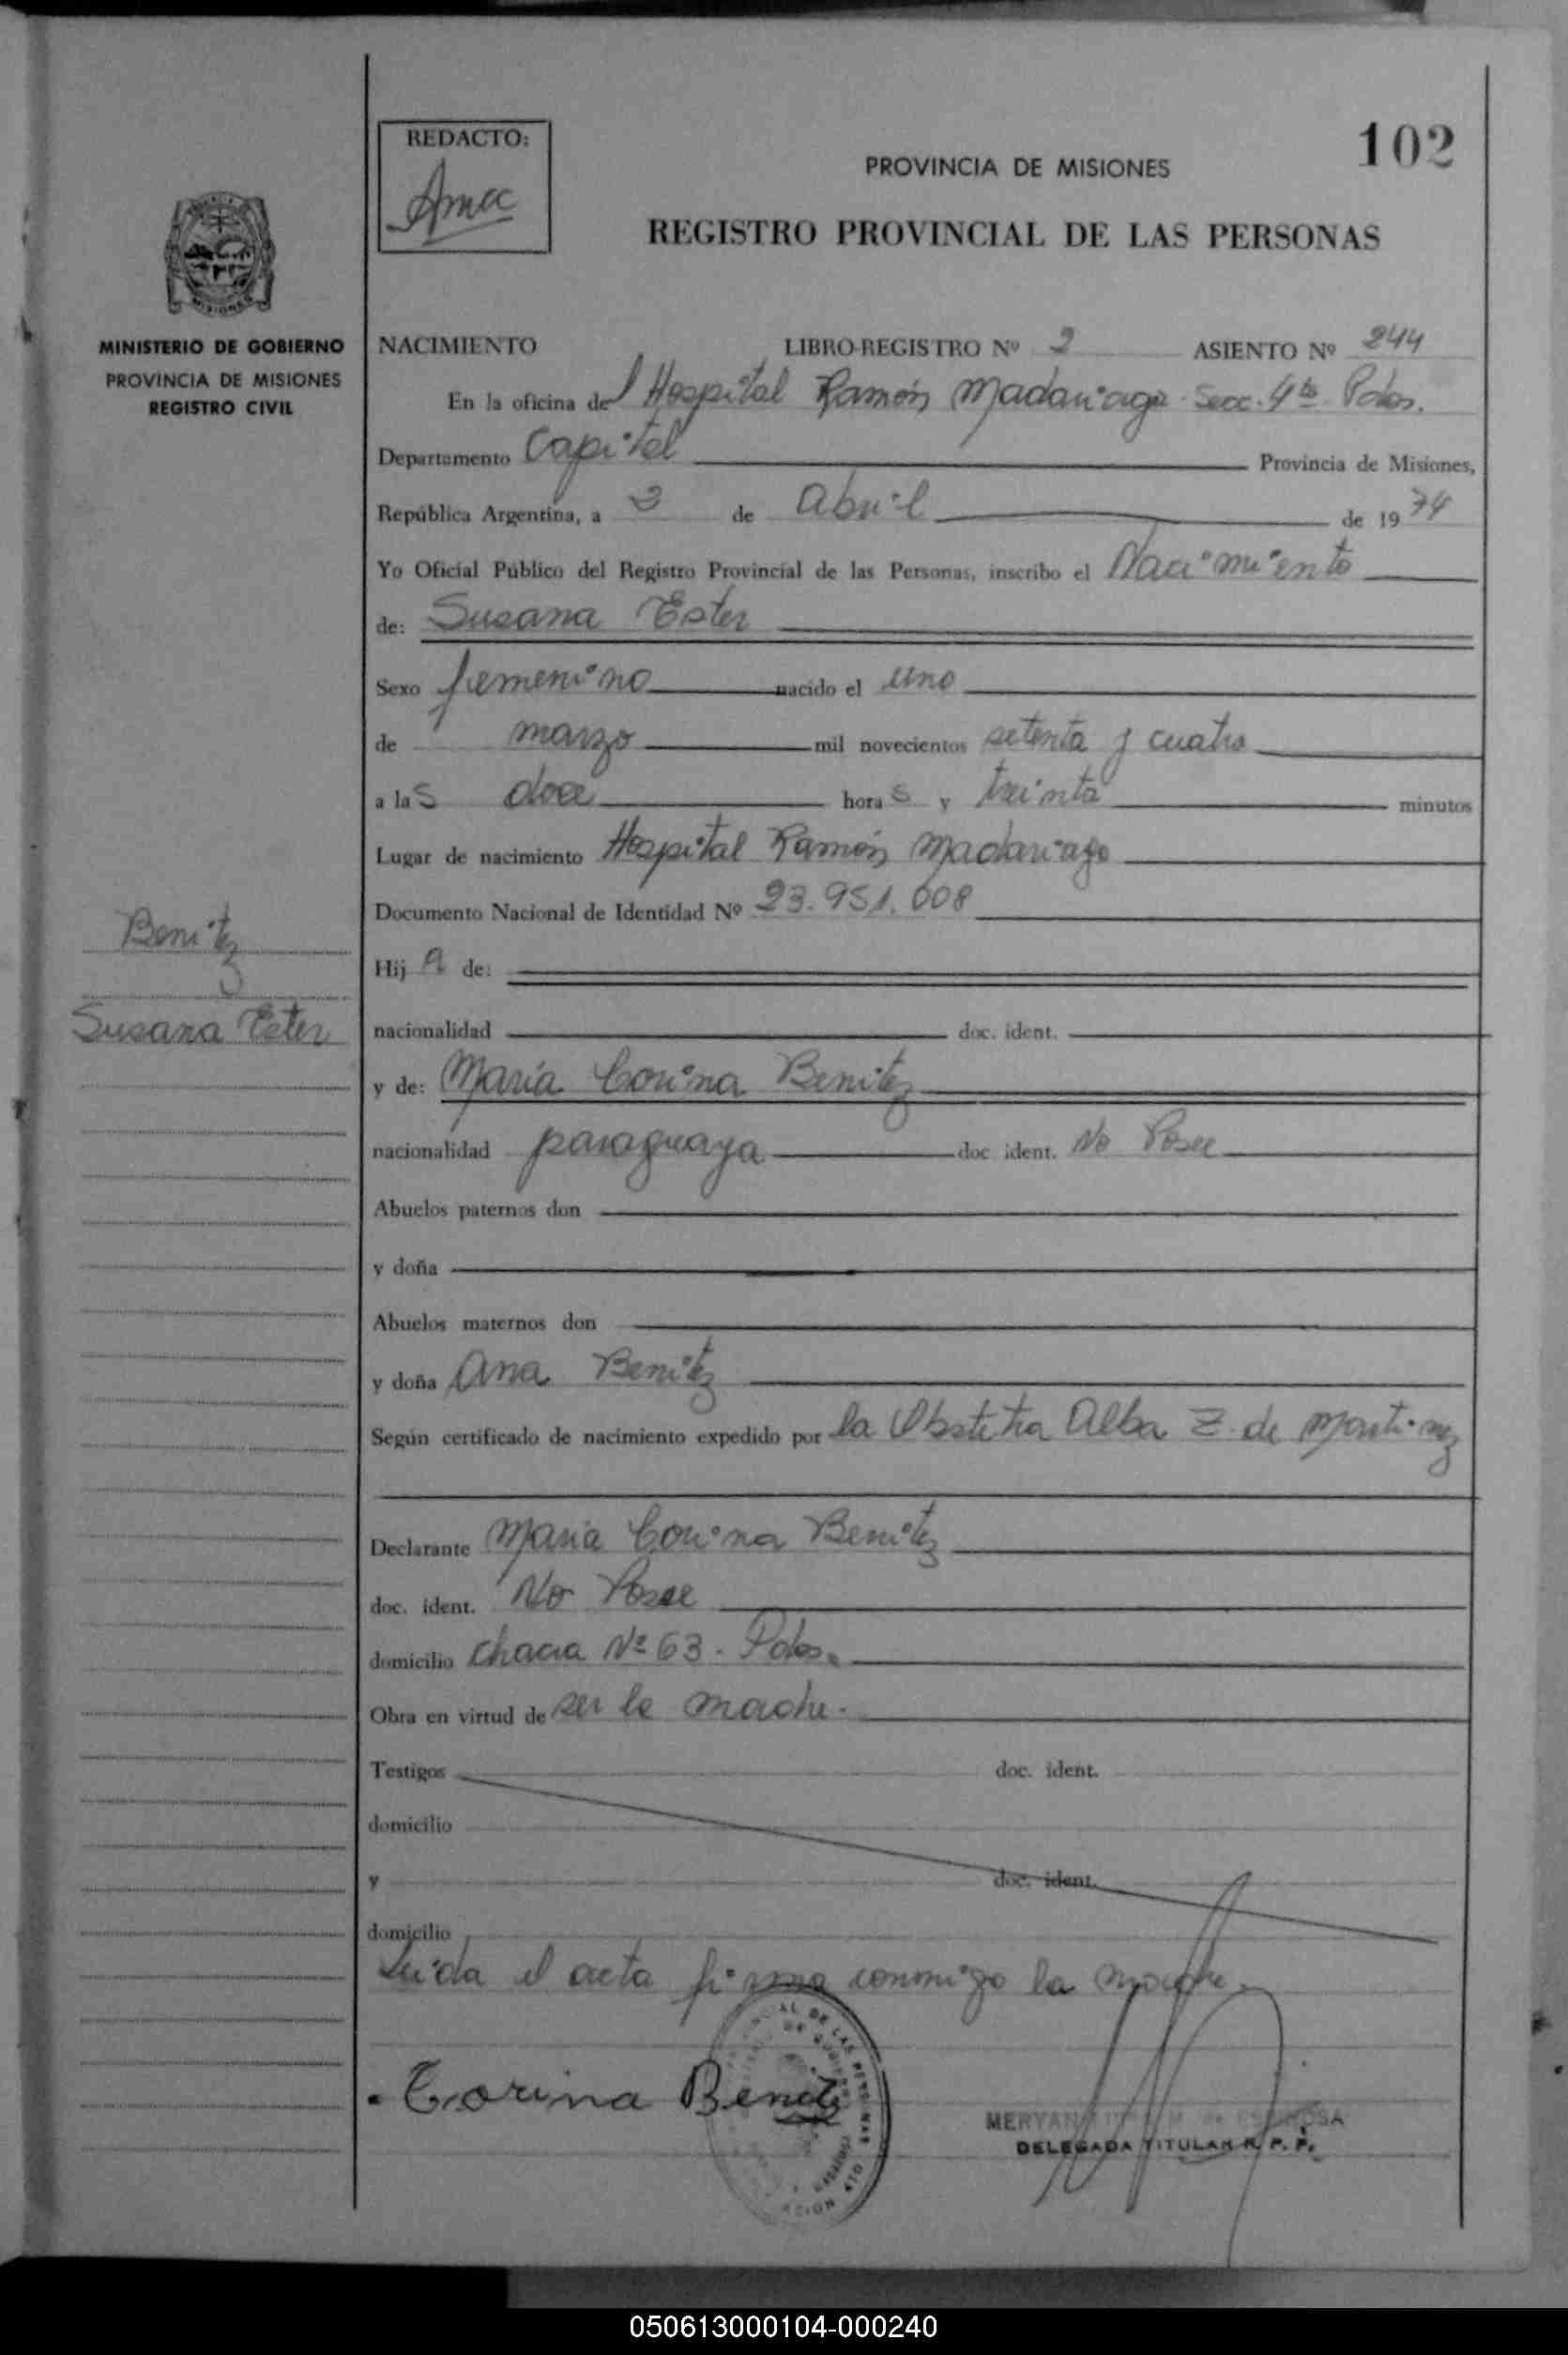 REDACTO:
102
PROVINCIA DE MISIONES
REGISTRO PROVINCIAL DE LAS PERSONAS
MISIONES
MINISTERIO DE GOBIERNO
PROVINCIA DE MISIONES
REGISTRO CIVIL
NACIMIENTO LIBRO-REGISTRO Nº 2 ASIENTO Nº 244
En la oficina del Hospital Ramón Madariaga Secc. 4ta Pdas.
Departamento Capital Provincia de Misiones,
República Argentina, a 3 de Abril de 1974
Yo Oficial Público del Registro Provincial de las Personas, inscribo el Nacimiento
de: Susana Ester
Sexo femenino nacido el uno
de marzo mil novecientos setenta y cuatro
a las doce horas y treinta minutos
Lugar de nacimiento Hospital Ramón Madariaga
Documento Nacional de Identidad Nº 23.951.008
Benitez
Susana Ester
Hija de:
nacionalidad doc. ident.
y de: Maria Corina Benitez
nacionalidad paraguaya doc ident. No Posee
Abuelos paternos don
y doña
Abuelos maternos don
y doña Ana Benitez
Según certificado de nacimiento expedido por la Obstetra Alba Z. de Martinez
Declarante Maria Corina Benitez
doc. ident. No Posee
domicilio chacra Nº 63 - Pdas.
Obra en virtud de ser la madre.
Testigos doc. ident.
domicilio
y doc. ident.
domicilio
Leida el acta firma conmigo la madre.
Corina Benitez
DELEGADA TITULAR R. P. P.
050613000104-000240